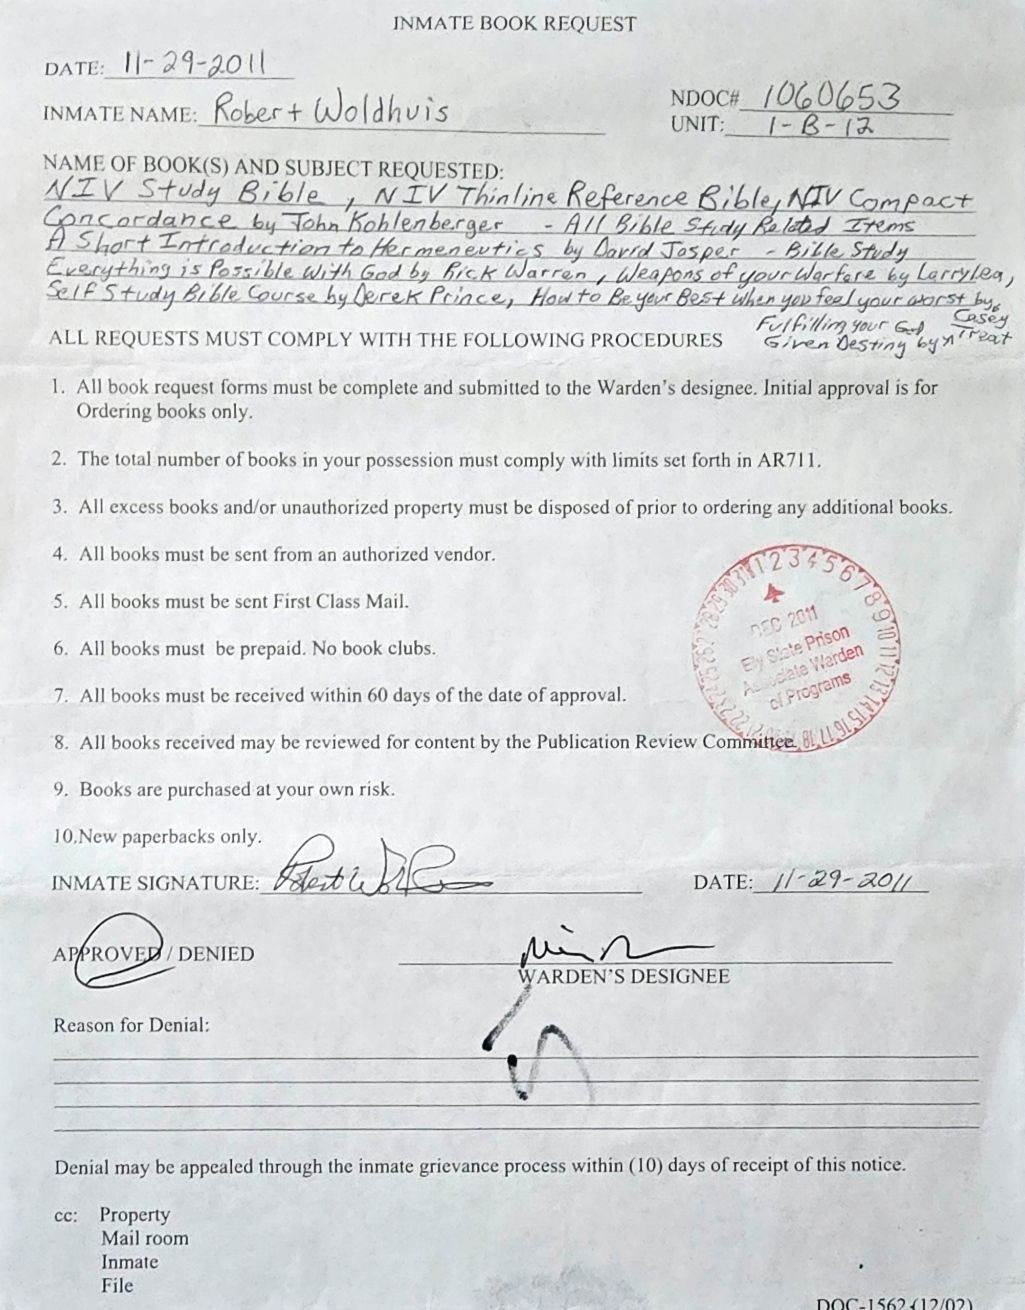 INMATE BOOK REQUEST
DATE: 11-29-2011
INMATE NAME: Robert Woldhuis
NDOC# 1060653
UNIT: 1-B-12
NAME OF BOOK(S) AND SUBJECT REQUESTED:
NIV Study Bible, NIV Thinline Reference Bible, NIV Compact
Concordance by John Kohlenberger - All Bible Study Related Items
A Short Introduction to Hermeneutics by David Jasper - Bible Study
Everything is Possible With God by Rick Warren, Weapons of your Warfare by Larry Lea,
Self Study Bible Course by Derek Prince, How to Be your Best when you feel your worst by
Casey Treat
Fulfilling your God
Given Destiny by
ALL REQUESTS MUST COMPLY WITH THE FOLLOWING PROCEDURES
1. All book request forms must be complete and submitted to the Warden's designee. Initial approval is for
Ordering books only.
2. The total number of books in your possession must comply with limits set forth in AR711.
3. All excess books and/or unauthorized property must be disposed of prior to ordering any additional books.
4. All books must be sent from an authorized vendor.
5. All books must be sent First Class Mail.
6. All books must be prepaid. No book clubs.
7. All books must be received within 60 days of the date of approval.
8. All books received may be reviewed for content by the Publication Review Committee.
9. Books are purchased at your own risk.
10.New paperbacks only.
DEC 2011
Ely State Prison
Associate Warden
of Programs
INMATE SIGNATURE: Robert
DATE: 11-29-2011
APPROVED / DENIED
WARDEN'S DESIGNEE
Reason for Denial:
Denial may be appealed through the inmate grievance process within (10) days of receipt of this notice.
cc: Property
Mail room
Inmate
File
DOC-1562 (12/02)